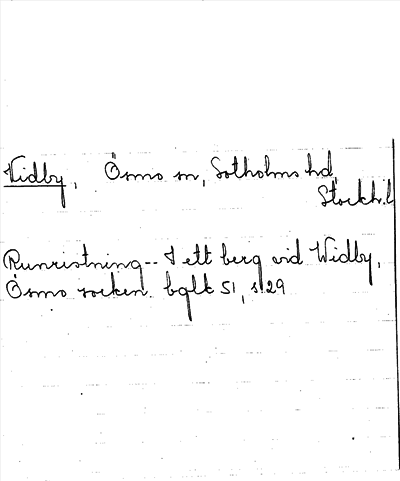 Vidby, Ösmo sn, Sotholms hd,
Stockh.l
Runristning -- I ett berg vid Widby,
Ösmo socken. bglk 51, s 29